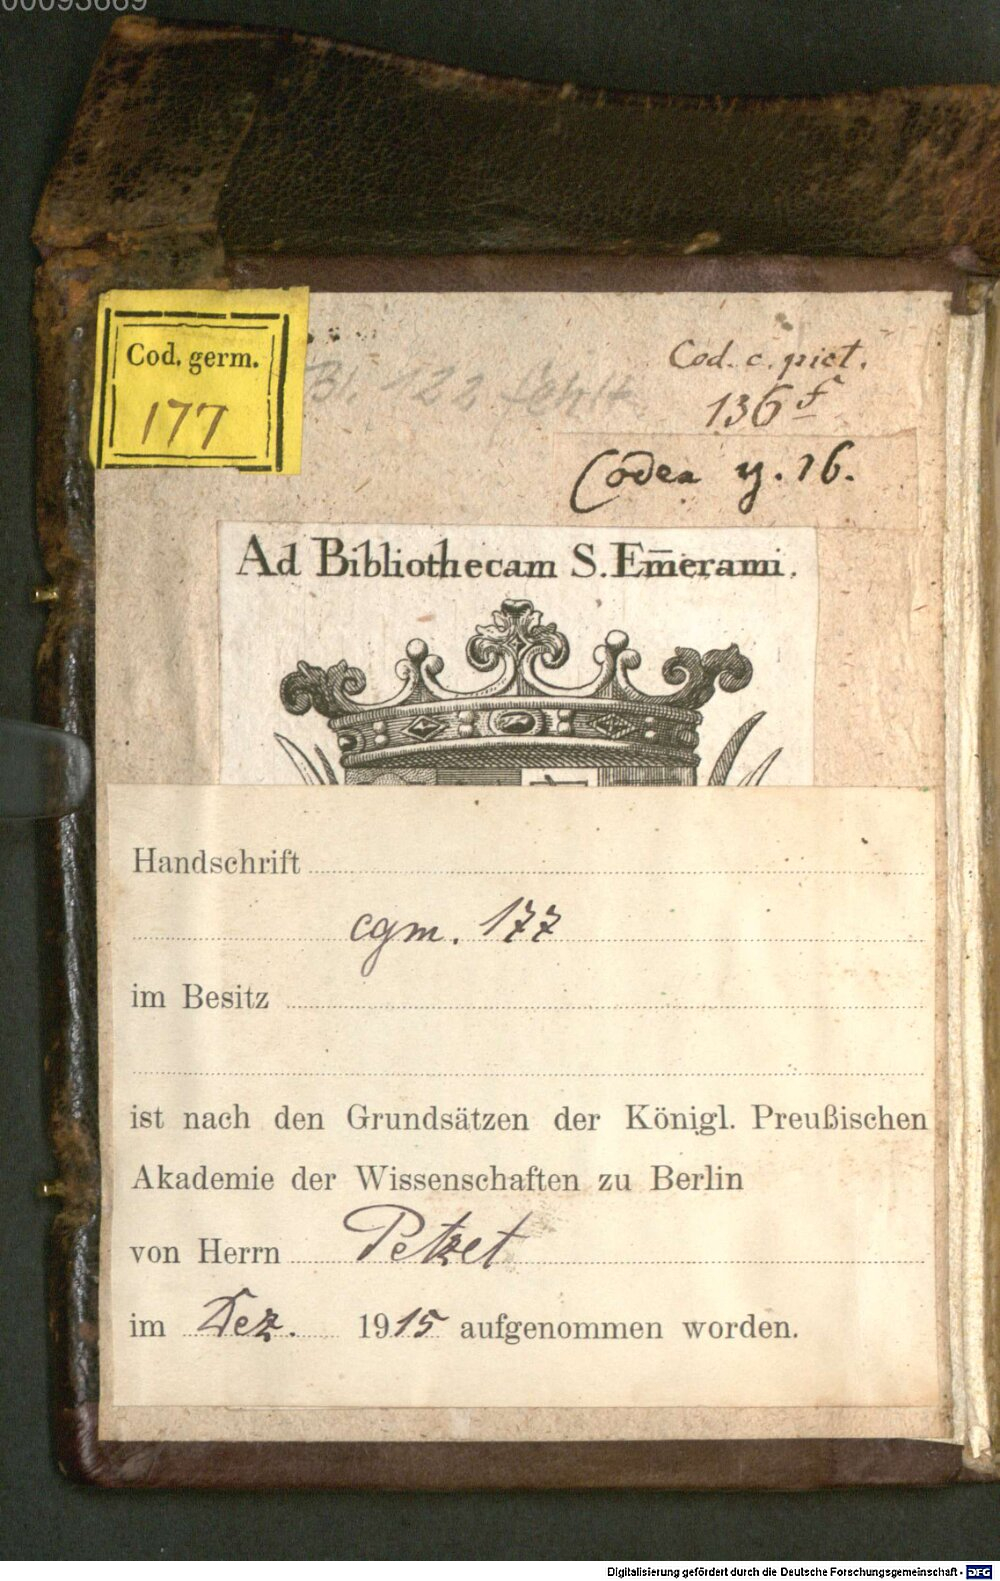 00093669
Cod. germ.
177
Bl. 122 fehlt
Cod. c. pict.
136 f
Codex y. 16.
Ad Bibliothecam S. Em̄erami.
Handschrift
cgm. 177
im Besitz
ist nach den Grundsätzen der Königl. Preußischen
Akademie der Wissenschaften zu Berlin
von Herrn Petzet
im Dez. 1915 aufgenommen worden.
Digitalisierung gefördert durch die Deutsche Forschungsgemeinschaft - DFG